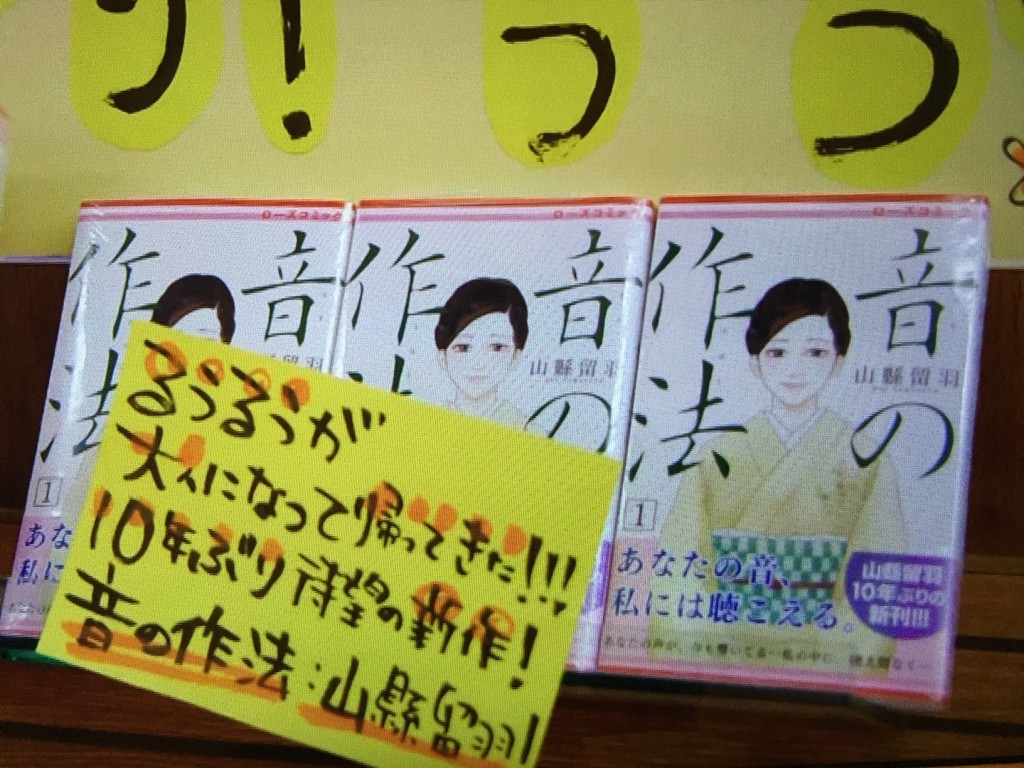 り! っ つ
ローズコミック
音の
作法
山縣留羽
1
あな
私に
ローズコミッ
音の
作
山縣留羽
ローズコミ
音の
作法
山縣留羽
1
あなたの音、
私には聴こえる。
山縣留羽
10年ぶりの
新刊!!!
るうるうが
大人になって帰ってきた!!!
10年ぶり待望の新作!
音の作法:山縣留羽